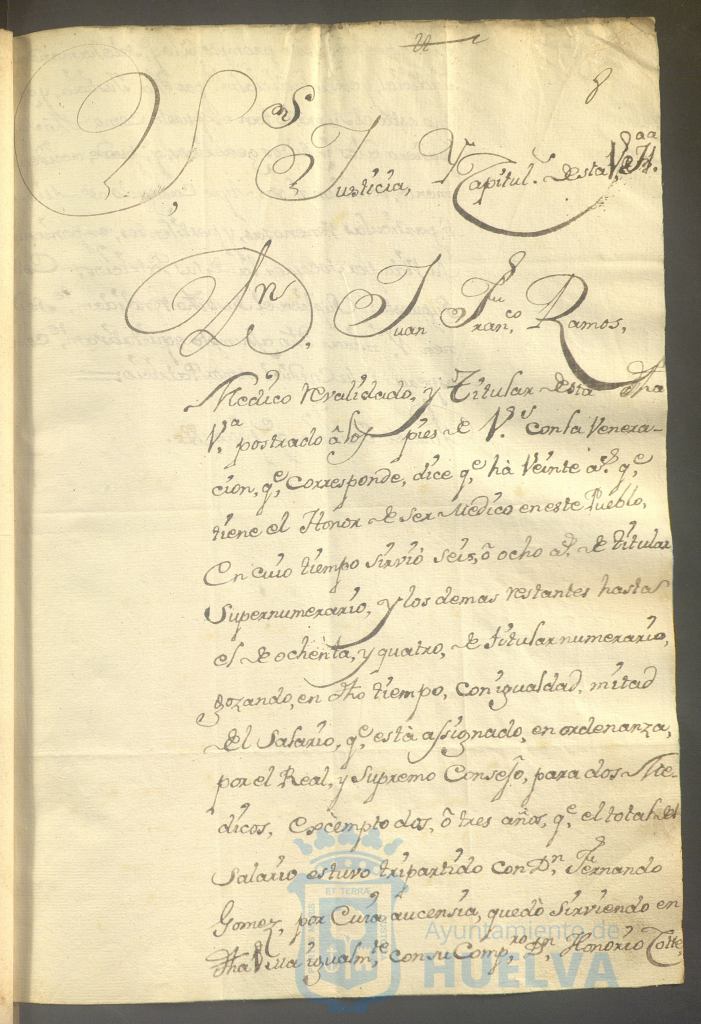 8
V, S.ns Justicia, y Capitul.s de esta V.a
D.n Juan Fran.co Ramos,
Medico revalidado, y Titular de esta dha
V.a postrado â los pies de V.s con la venera-
cion, q.e corresponde, dice q.e hà veinte a.s q.e
tiene el Honor de ser Medico en este Pueblo,
En cuio tiempo sirviò seis, ô ocho a.s de titular
supernumerario, y los demas restantes hasta
el de ochenta, y quatro, de titular numerario,
gozando, en dho tiempo, con igualdad, mitad
del salario, q.e està assignado, en ordenanza,
por el Real, y Supremo Consejo, para dos Me-
dicos, excèmpto dos, ô tres años, q.e el total del
salario estuvo tripartido con D.n Fernando
Gomez, por cuia aucensia, quedò sirviendo en
dha Villa igualm.te con su Comp.ro D.n Honorio
Ayuntamiento de
HUELVA